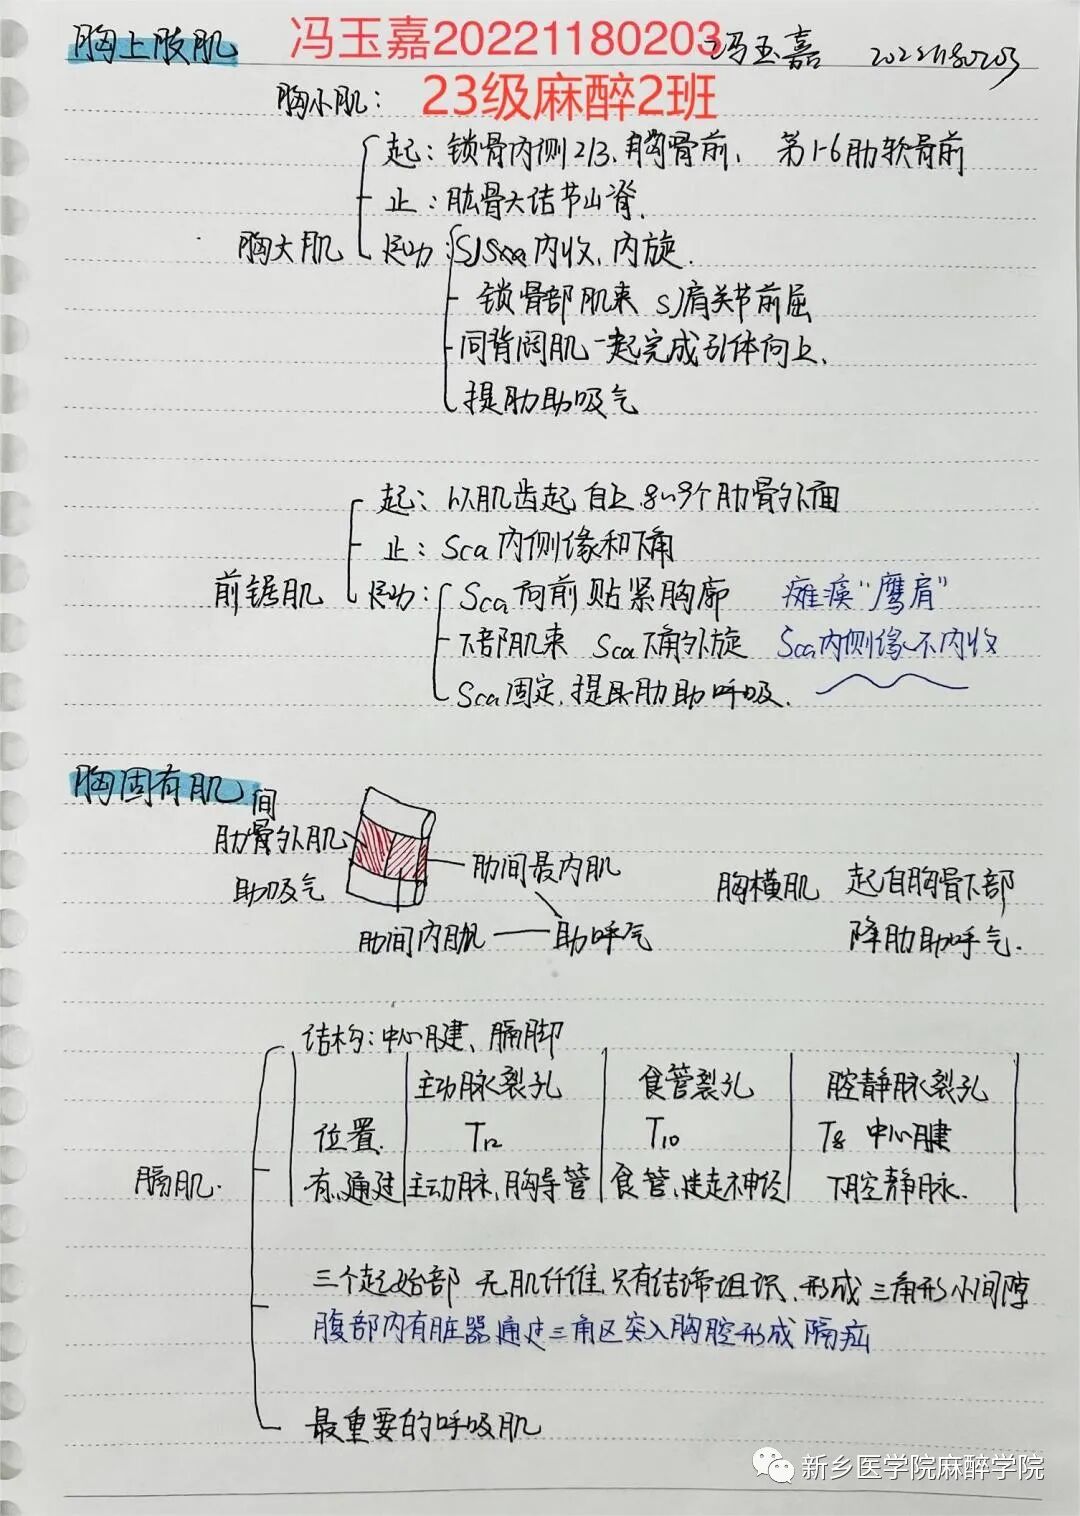 胸上肢肌 冯玉嘉20221180203 冯玉嘉 20221180203
23级麻醉2班
胸小肌：
起：锁骨内侧2/3、胸骨前、第1-6肋软骨前
止：肱骨大结节山脊.
胸大肌 运动：SJ Sca 内收、内旋.
锁骨部肌束 SJ肩关节前屈
同背阔肌一起完成引体向上.
提肋助吸气
起：以肌齿起自上8~9个肋骨外面
止：Sca内侧缘和下角
前锯肌 运动：Sca向前贴紧胸廓 瘫痪“鹰肩”
下部肌束 Sca下角外旋 Sca内侧缘不内收
Sca固定.提肋助呼吸.
胸固有肌
间
肋骨外肌
助吸气
肋间最内肌
肋间内肌 助呼气
胸横肌 起自胸骨下部
降肋助呼气.
结构：中心腱、膈脚
主动脉裂孔 食管裂孔 腔静脉裂孔
位置. T12 T10 T8 中心腱
膈肌. 有通过 主动脉、胸导管 食管、迷走神经 下腔静脉.
三个起始部 无肌纤维.只有结缔组织、形成三角形小间隙
腹部内有脏器通过三角区突入胸腔形成膈疝
最重要的呼吸肌
新乡医学院麻醉学院